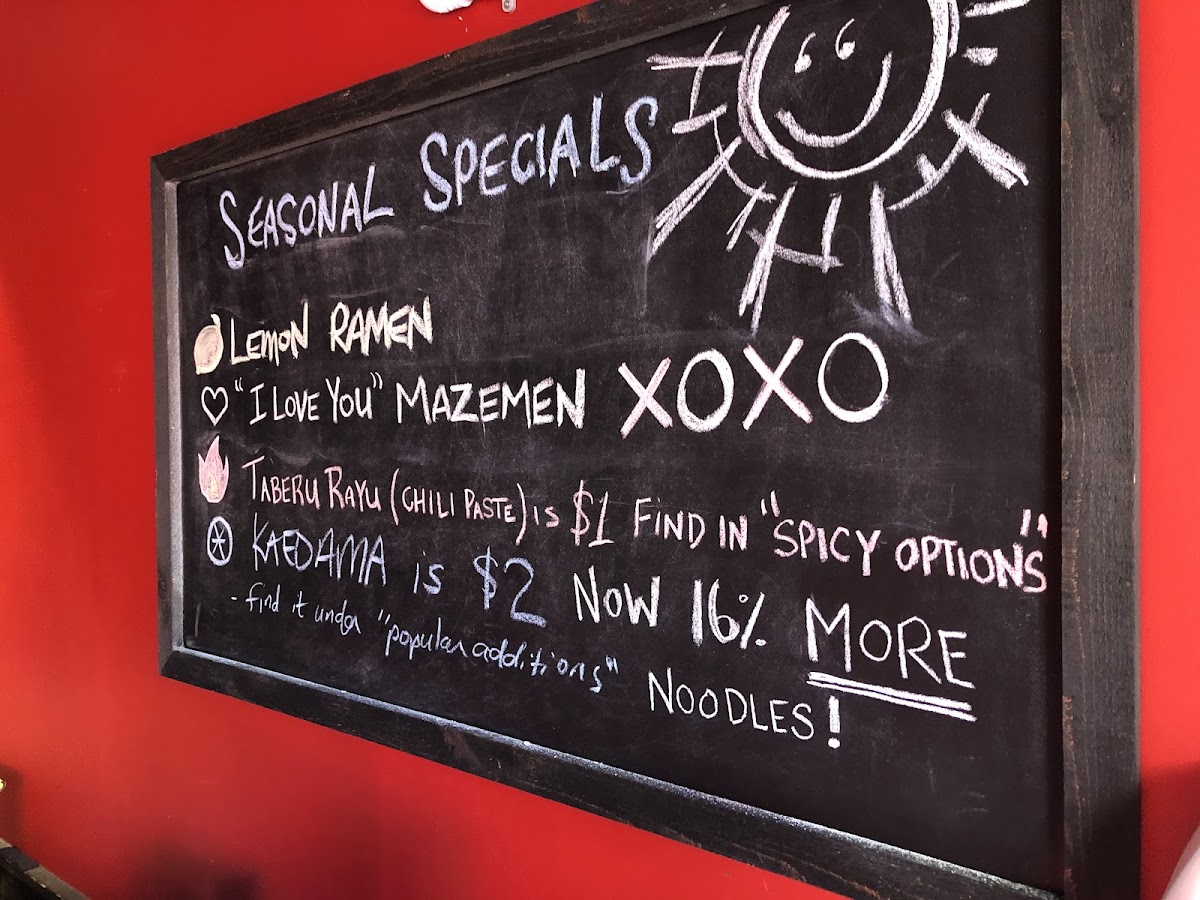 SEASONAL SPECIALS
LEMON RAMEN
"I LOVE YOU" MAZEMEN XOXO
TABERU RAYU (CHILI PASTE) IS $1 FIND IN "SPICY OPTIONS"
KAEDAMA is $2 NOW 16% MORE
- find it under "popular additions" NOODLES!